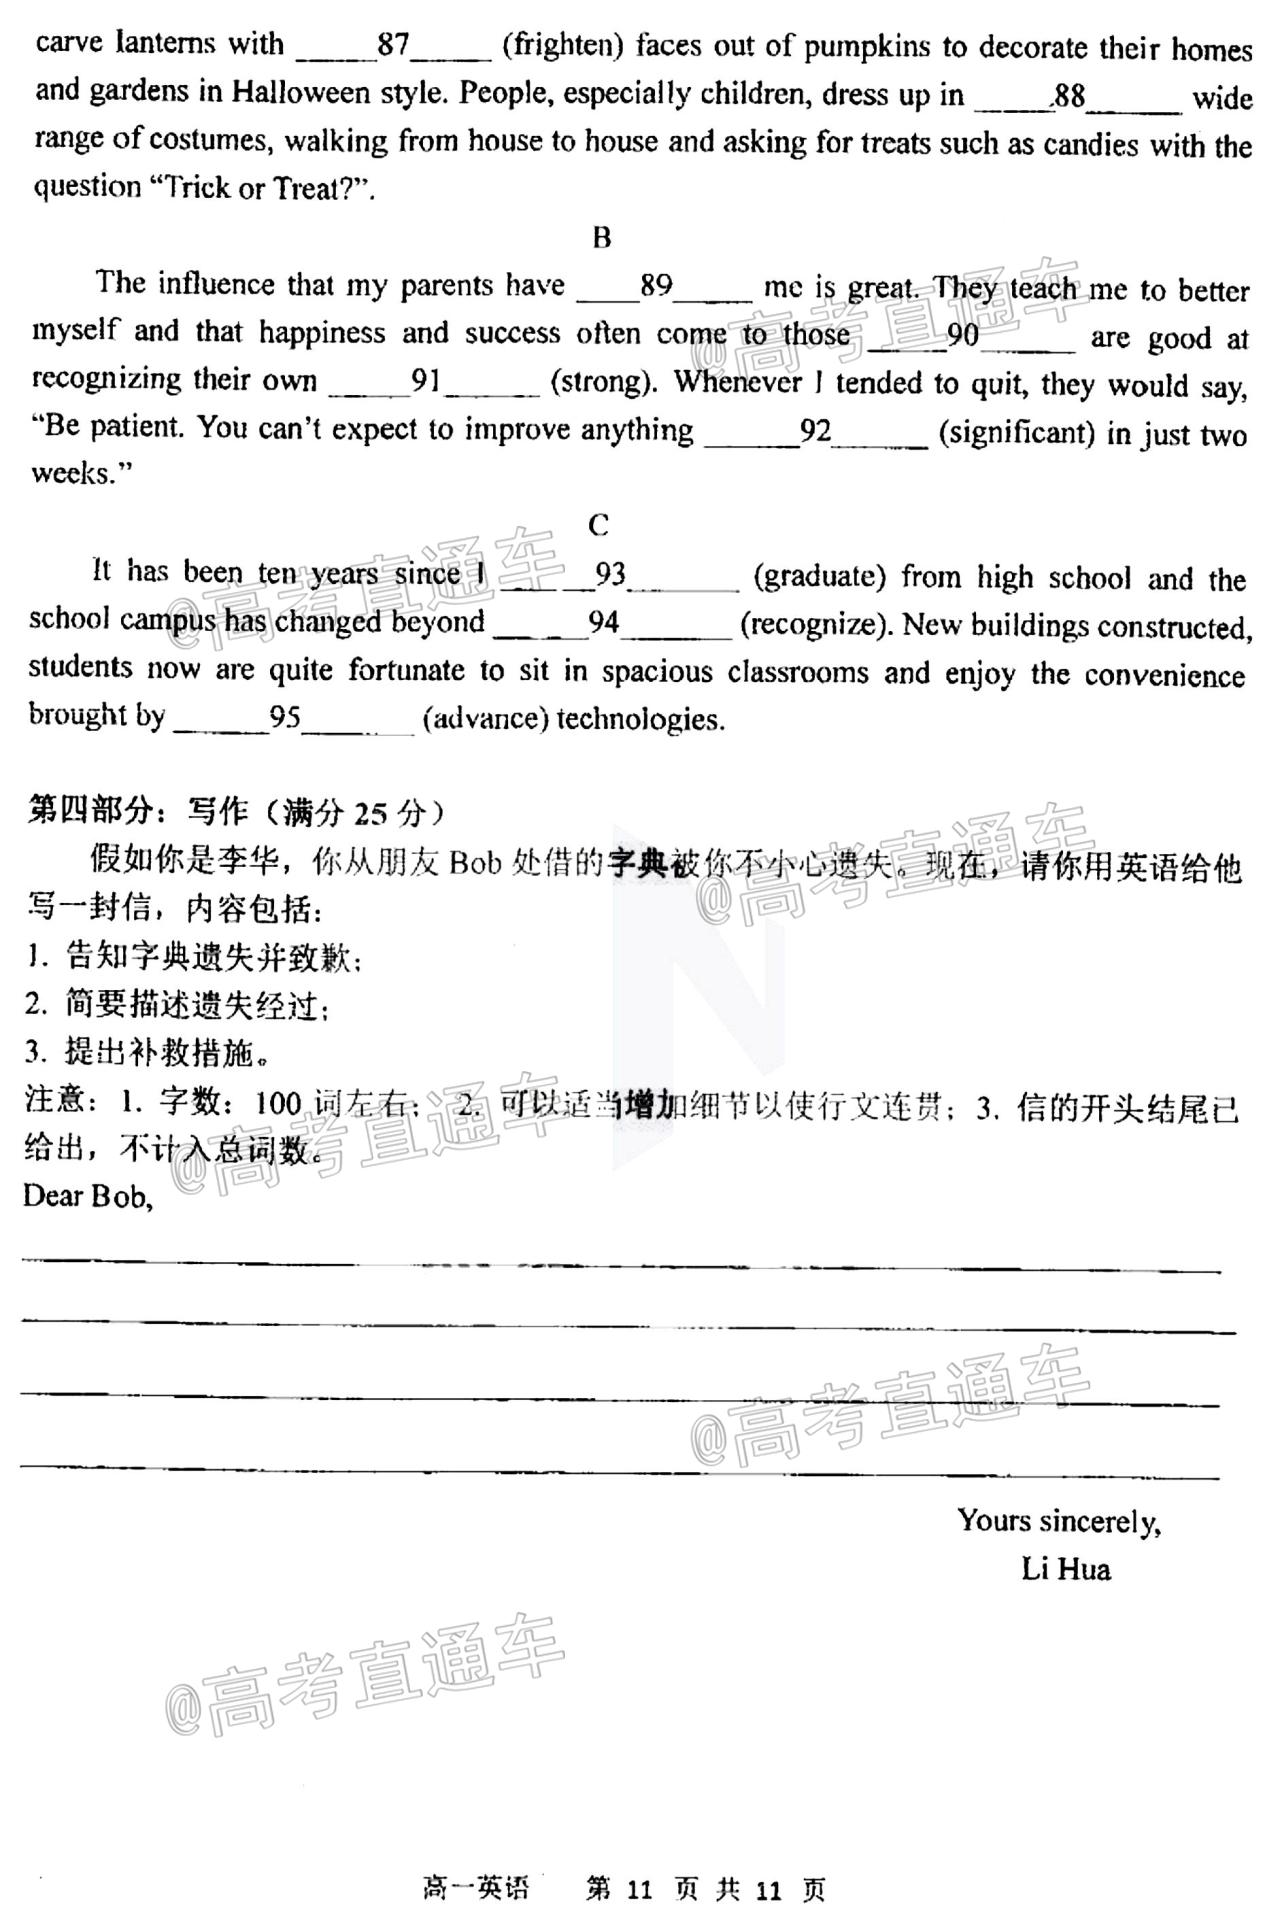 carve lanterns with _____87_____ (frighten) faces out of pumpkins to decorate their homes
and gardens in Halloween style. People, especially children, dress up in _____88______ wide
range of costumes, walking from house to house and asking for treats such as candies with the
question “Trick or Treat?”.
B
The influence that my parents have ____89_____ me is great. They teach me to better
myself and that happiness and success often come to those _____90______ are good at
recognizing their own _____91______ (strong). Whenever I tended to quit, they would say,
“Be patient. You can’t expect to improve anything ______92______ (significant) in just two
weeks.”
C
It has been ten years since I ______93_______ (graduate) from high school and the
school campus has changed beyond ______94_______ (recognize). New buildings constructed,
students now are quite fortunate to sit in spacious classrooms and enjoy the convenience
brought by ______95_______ (advance) technologies.
第四部分：写作（满分 25 分）
假如你是李华，你从朋友 Bob 处借的字典被你不小心遗失。现在，请你用英语给他
写一封信，内容包括：
1. 告知字典遗失并致歉；
2. 简要描述遗失经过；
3. 提出补救措施。
注意：1. 字数：100 词左右； 2. 可以适当增加细节以使行文连贯；3. 信的开头结尾已
给出，不计入总词数。
Dear Bob,
Yours sincerely,
Li Hua
高一英语 第 11 页 共 11 页
@高考直通车
@高考直通车
@高考直通车
@高考直通车
@高考直通车
@高考直通车